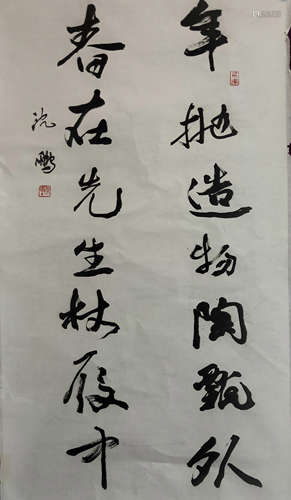 年抛造物陶甄外
春在先生杖屦中
沈鹏